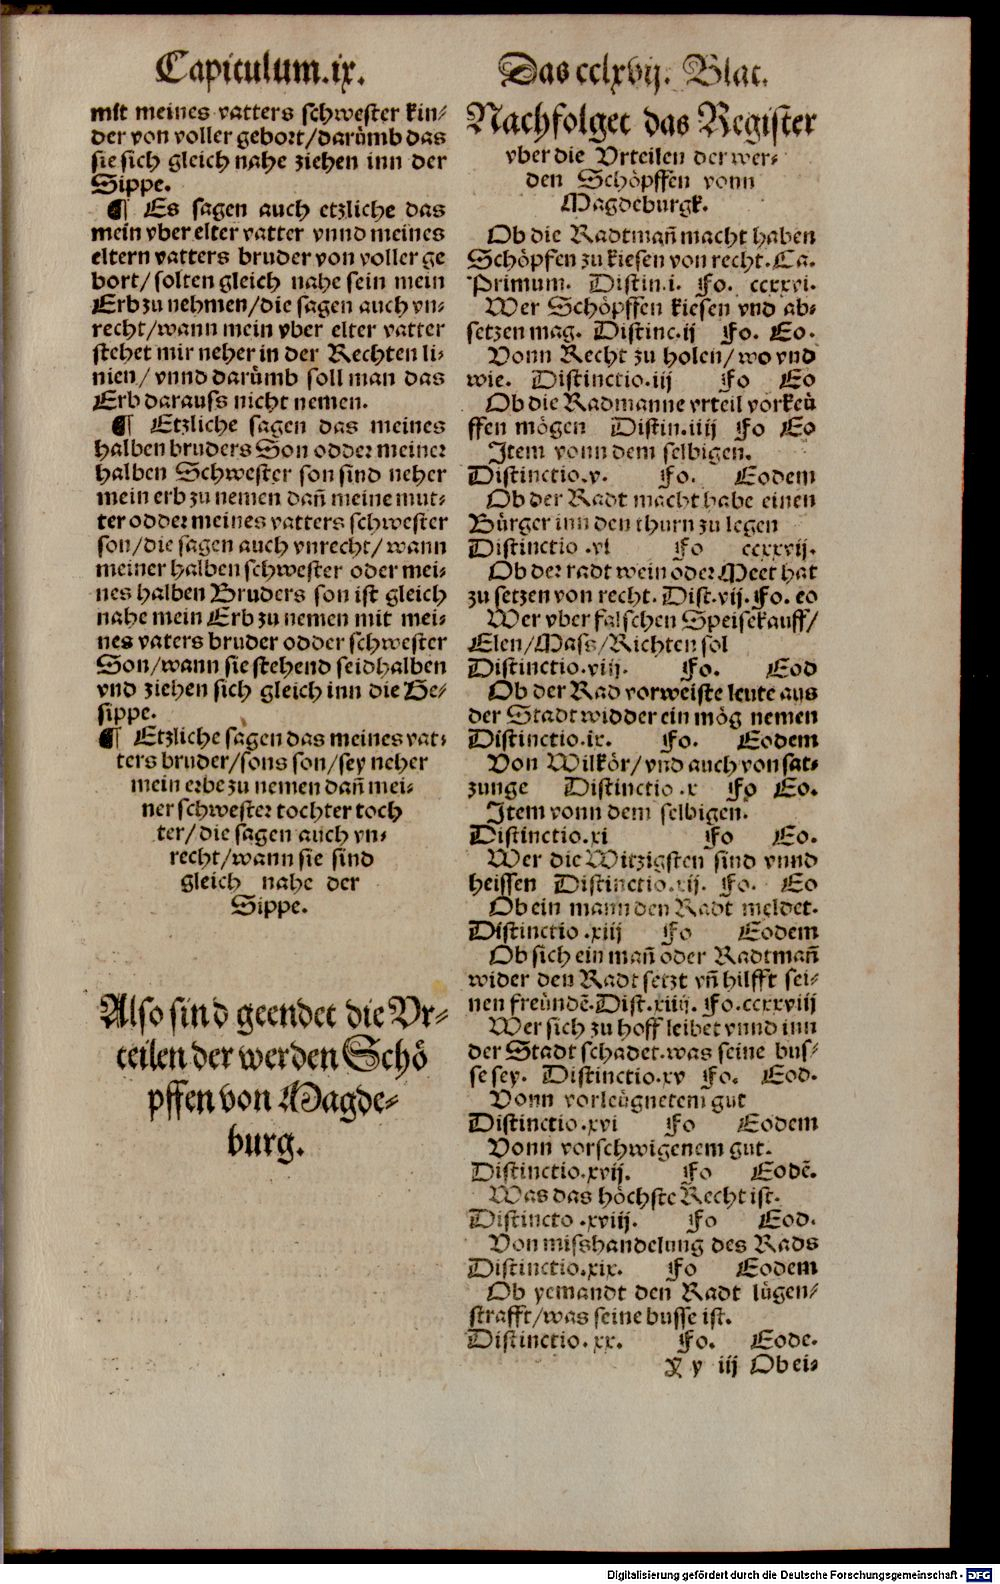 Capitulum.ix.
mit meines vatters schwester kin-
der von voller gebort/darümb das
sie sich gleich nahe ziehen inn der
Sippe.
¶ Es sagen auch etzliche das
mein vber elter vatter vnnd meines
eltern vatters bruder von voller ge
bort/solten gleich nahe sein mein
Erb zu nehmen/die sagen auch vn-
recht/wann mein vber elter vatter
stehet mir neher in der Rechten li-
nien/vnnd darümb soll man das
Erb darauss nicht nemen.
¶ Etzliche sagen das meines
halben bruders Son odder meiner
halben Schwester son sind neher
mein erb zu nemen dañ meine mut-
ter odder meines vatters schwester
son/die sagen auch vnrecht/wann
meiner halben schwester oder mei-
nes halben Bruders son ist gleich
nahe mein Erb zu nemen mit mei-
nes vaters bruder odder schwester
Son/wann sie stehend seidhalben
vnd ziehen sich gleich inn die Ge-
sippe.
¶ Etzliche sagen das meines vat-
ters bruder/sons son/sey neher
mein erbe zu nemen dañ mei-
ner schwester tochter toch
ter/die sagen auch vn-
recht/wann sie sind
gleich nahe der
Sippe.
Also sind geendet die Vr-
teilen der werden Schö
pffen von Magde-
burg.
Das cclxvij. Blat.
Nachfolget das Register
vber die Vrteilen der wer-
den Schöpffen vonn
Magdeburgk.
Ob die Radtmañ macht haben
Schöpfen zu kiesen von recht. Ca.
Primum. Distin.i. Fo. ccxxvi.
Wer Schöpffen kiesen vnd ab-
setzen mag. Distinc.ij Fo. Eo.
Vonn Recht zu holen/wo vnd
wie. Distinctio.iij Fo Eo
Ob die Radmanne vrteil vorkeü
ffen mögen Distin.iiij Fo Eo
Item vonn dem selbigen.
Distinctio.v. Fo. Eodem
Ob der Radt macht habe einen
Bürger inn den thurn zu legen
Distinctio .vi Fo ccxxvij.
Ob der radt wein oder Meet hat
zu setzen von recht. Dist.vij. Fo. eo
Wer vber falschen Speisekauff/
Elen/Mass/Richten sol
Distinctio.viij. Fo. Eod
Ob der Rad vorweiste leute aus
der Stadt widder ein mög nemen
Distinctio.ix. Fo. Eodem
Von Wilkör/vnd auch von sat-
zunge Distinctio.x Fo Eo.
Item vonn dem selbigen.
Distinctio.xi Fo Eo.
Wer die Witzigsten sind vnnd
heissen Distinctio.xij. Fo. Eo
Ob ein mann den Radt meldet.
Distinctio .xiij Fo Eodem
Ob sich ein mañ oder Radtmañ
wider den Radt setzt vñ hilfft sei-
nen freündẽ. Dist.xiiij. Fo.ccxxviij
Wer sich zu hoff leibet vnnd inn
der Stadt schadet. was seine bus-
se sey. Distinctio.xv Fo. Eod.
Vonn vorleügnetem gut
Distinctio.xvi Fo Eodem
Vonn vorschwigenem gut.
Distinctio.xvij. Fo Eodẽ.
Was das höchste Recht ist.
Distincto .xviij. Fo Eod.
Von misshandelung des Rads
Distinctio.xix. Fo Eodem
Ob yemandt den Radt lügen-
strafft/was seine busse ist.
Distinctio. xx. Fo. Eode.
X y iij Ob ei-
Digitalisierung gefördert durch die Deutsche Forschungsgemeinschaft - DFG